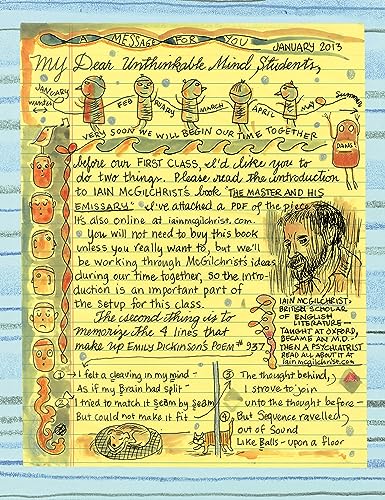 A MESSAGE FOR YOU
JANUARY 2013
My Dear Unthinkable Mind Students,
JANUARY
winter
FEB
RUARY
MARCH
APRIL
MAY
Summer
VERY SOON WE WILL BEGIN OUR TIME TOGETHER
DANG!
before our FIRST CLASS, I'd like you to
do two things. Please read the introduction
to IAIN McGILCHRIST's book "THE MASTER AND HIS
EMISSARY." I've attached a PDF of the piece
It's also online at iainmcgilchrist.com.
You will not need to buy this book
unless you really want to, but we'll
be working through McGilchrist's ideas
during our time together, so the intro-
duction is an important part of
the setup for this class.
The second thing is to
memorize the 4 lines that
make up EMILY DICKINSON'S POEM #937
IAIN McGILCHRIST:
BRITISH SCHOLAR
OF ENGLISH
LITERATURE—
TAUGHT AT OXFORD,
BECAME AN M.D.
THEN A PSYCHIATRIST
READ ALL ABOUT IT AT
iainmcgilchrist.com
① I felt a cleaving in my mind -
As if my Brain had split -
② I tried to match it seam by seam
But could not make it fit
③ The thought behind,
I strove to join
unto the thought before -
④ But Sequence ravelled
out of Sound
Like Balls - upon a floor